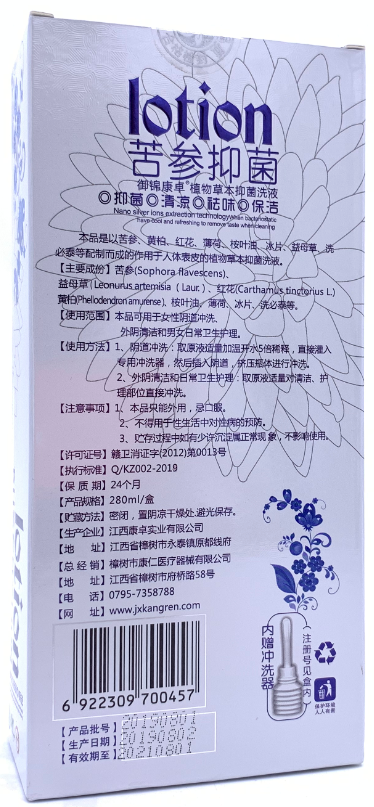 lotion
苦参抑菌
御锦康卓®植物草本抑菌洗液
◎抑菌◎清凉◎祛味◎保洁
Nano silver ions extrection technology
and refreshing to remove taste when cleaning
本品是以苦参、黄柏、红花、薄荷、桉叶油、冰片、益母草、洗
必泰等配制而成的作用于人体表皮的植物草本抑菌洗液。
【主要成份】苦参(Sophora flavescens)、
益母草(Leonurus artemisia（Laur.）、红花(Carthamus tinctorius L.)
黄柏(Phellodendron amurense)、桉叶油、薄荷、冰片、洗必泰等。
【使用范围】本品可用于女性阴道冲洗、
外阴清洁和男女日常卫生护理。
【使用方法】1、阴道冲洗：取原液适量加温开水5倍稀释，直接灌入
专用冲洗器，然后插入阴道，挤压瓶体进行冲洗。
2、外阴清洁和日常卫生护理：取原液适量对清洁、护
理部位直接冲洗。
【注意事项】1、本品只能外用，忌口服。
2、不得用于性生活中对性病的预防。
3、贮存过程中如有少许沉淀属正常现象，不影响使用。
【许可证号】赣卫消证字(2012)第0013号
【执行标准】Q/KZ002-2019
【保 质 期】24个月
【产品规格】280ml/盒
【贮藏方法】密闭，置阴凉干燥处.避光保存。
【生产企业】江西康卓实业有限公司
【地 址】江西省樟树市永泰镇原都线府
【总 经 销】樟树市康仁医疗器械有限公司
【地 址】江西省樟树市府桥路58号
【电 话】0795-7358788
【网 址】www.jxkangren.com
内赠冲洗器
注册号见盒内
保护环境
人人有责
6 922309 700457
【产品批号】20190801
【生产日期】20190802
【有效期至】20210801
lotion